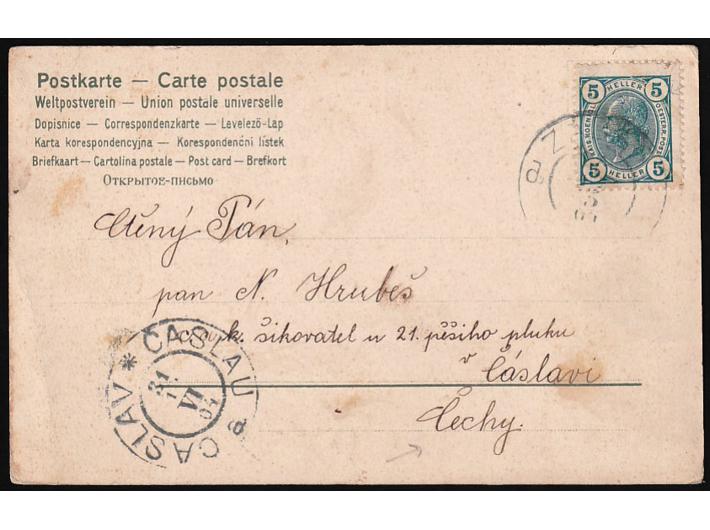 Postkarte — Carte postale
Weltpostverein — Union postale universelle
Dopisnice — Correspondenzkarte — Levelező-Lap
Karta korespondencyjna — Korespondenční lístek
Briefkaart — Cartolina postale — Post card — Brefkort
Открытое-письмо
5 HELLER 5
5 HELLER 5
Ctěný Pán,
pan N. Hrubeš
šikovatel u 21. pěšího pluku
v Čáslavi
Čechy.
CASLAU a ČASLAV *
21
VI